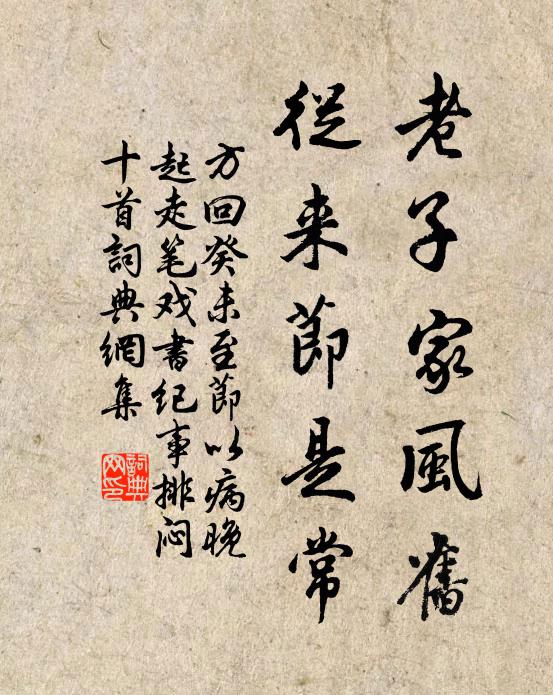 老子家風舊
從来節是常
方回癸未至節以病晚
起走笔戏書纪事排闷
十首詞典網集
詞典
网印